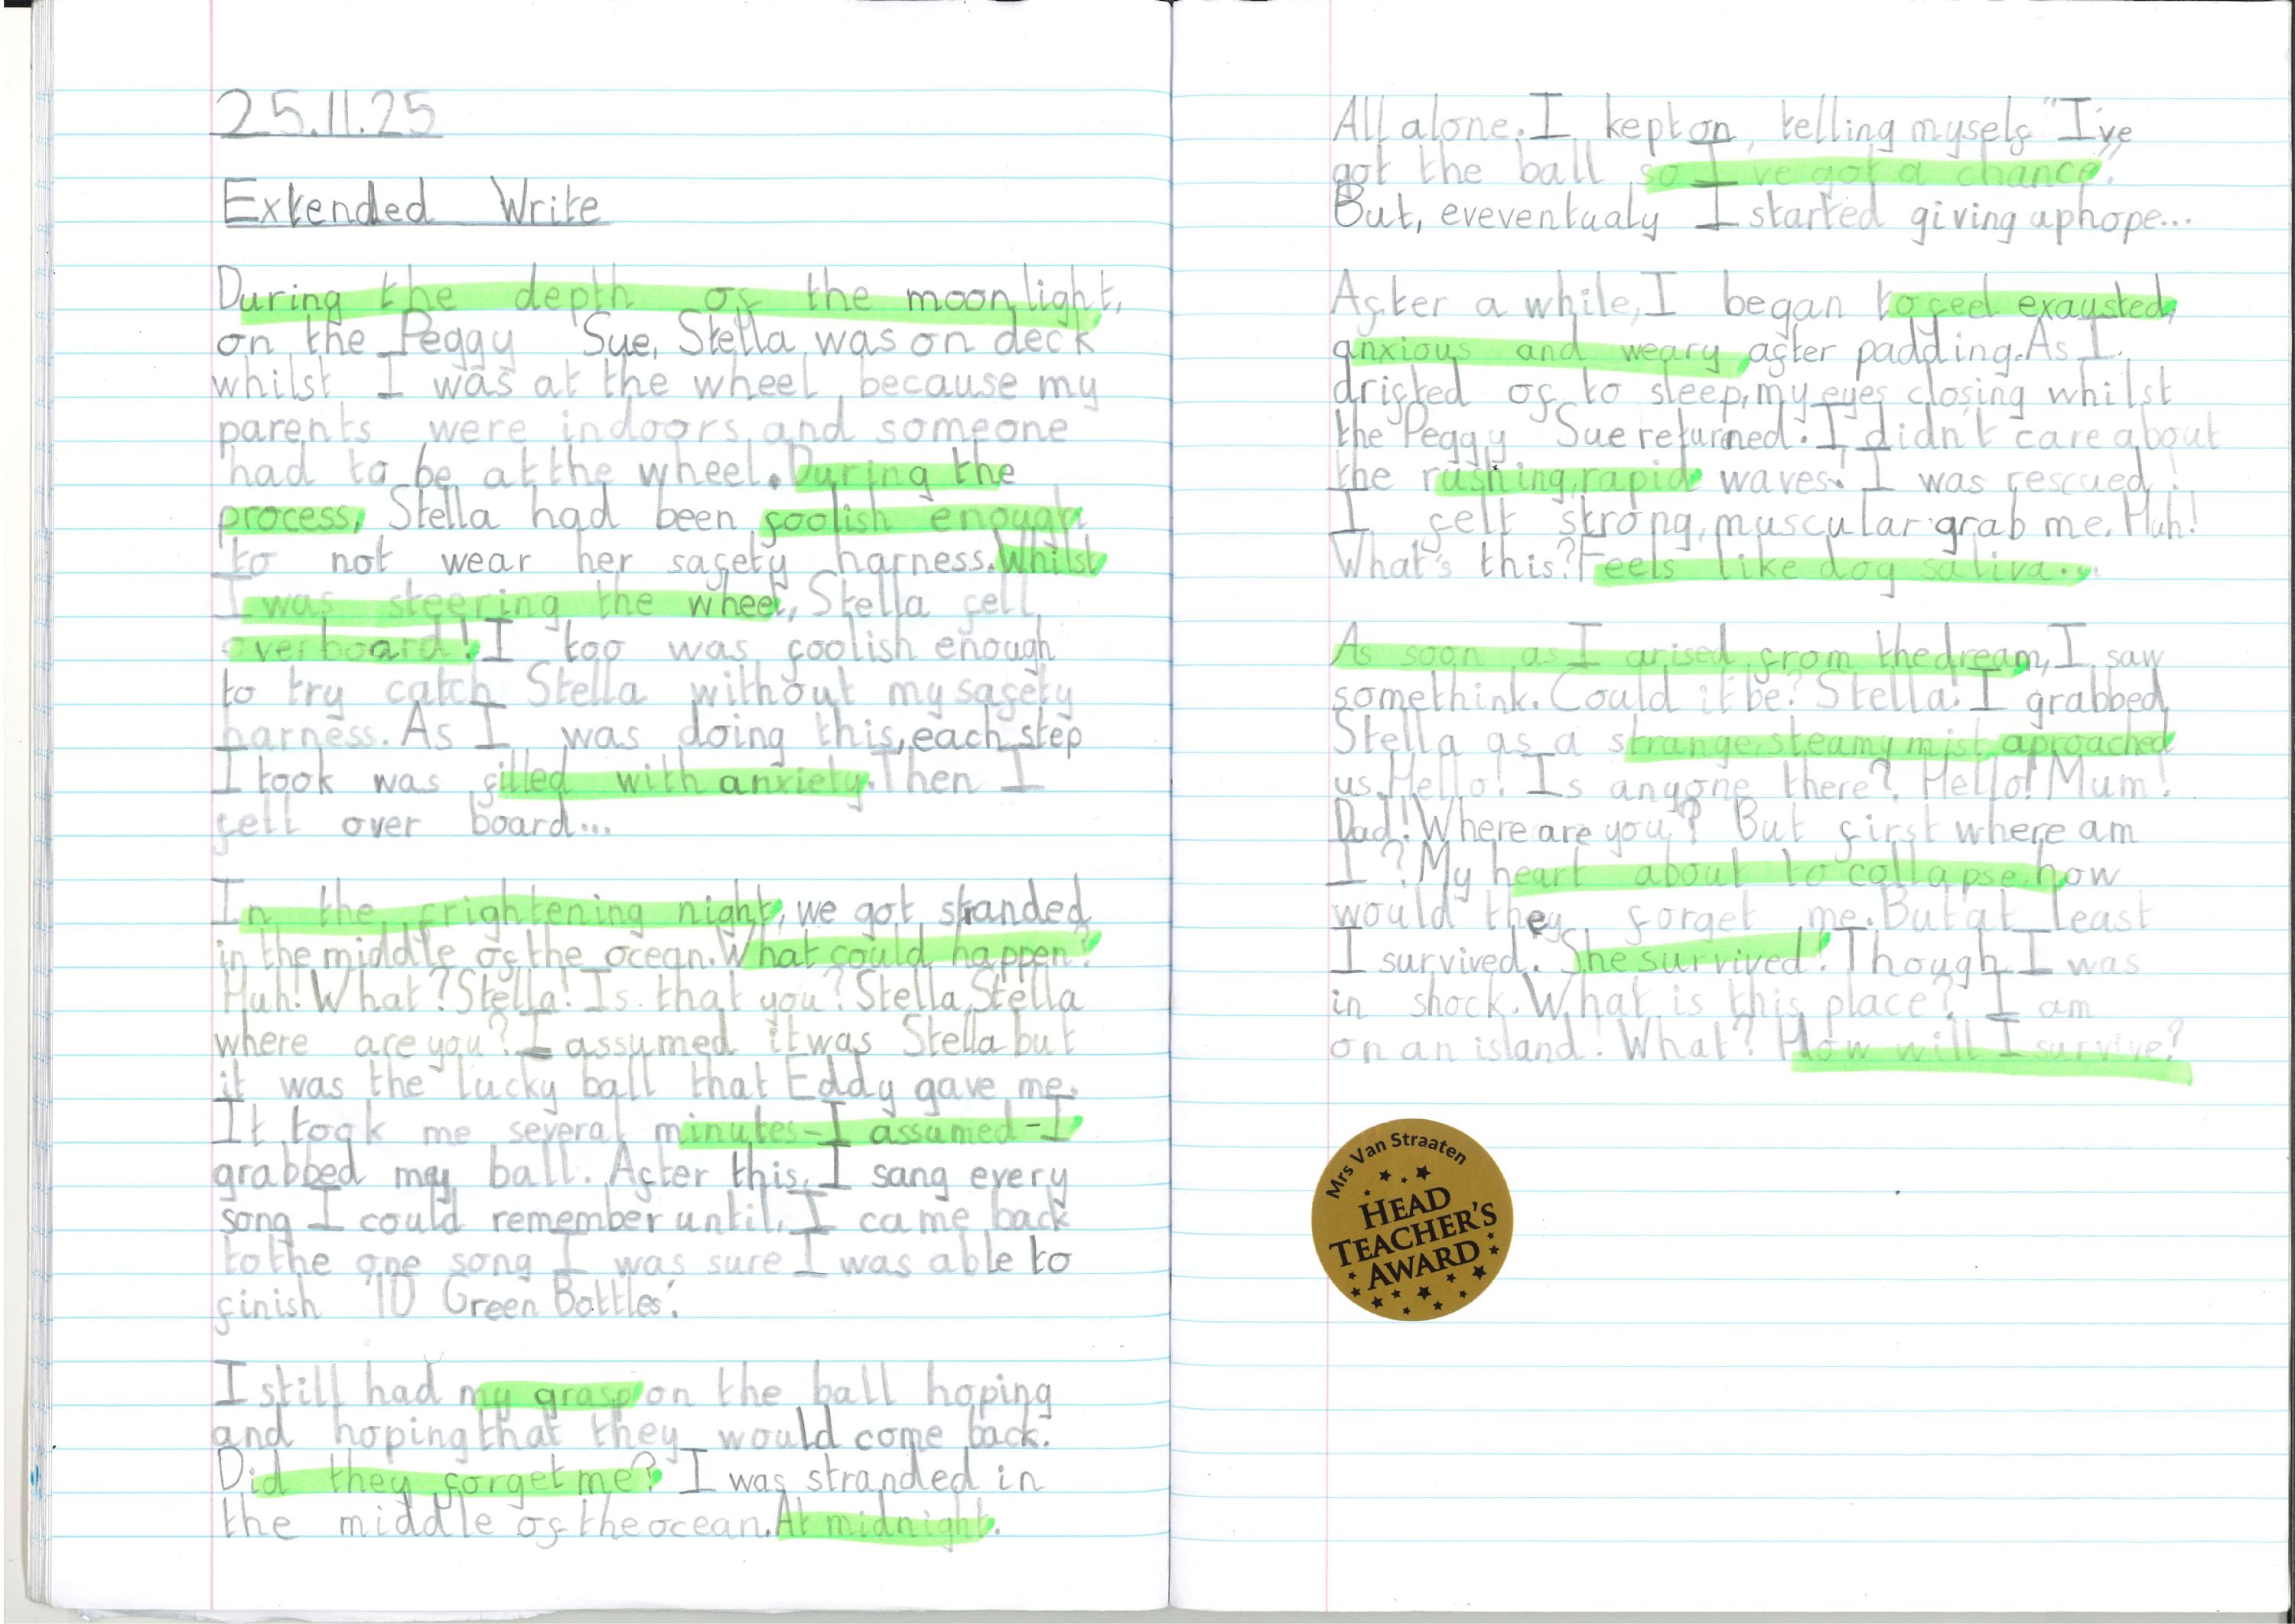 25.11.25
Extended Write
During the depth of the moonlight,
on the Peggy Sue, Stella was on deck
whilst I was at the wheel because my
parents were indoors and someone
had to be at the wheel. During the
process, Stella had been foolish enough
to not wear her safety harness. Whilst
I was steering the wheel, Stella fell
overboard! I too was foolish enough
to try catch Stella without my safety
harness. As I was doing this, each step
I took was filled with anxiety. Then I
fell over board...
In the frightening night, we got stranded
in the middle of the ocean. What could happen?
Huh! What? Stella! Is that you? Stella, Stella
where are you? I assumed it was Stella but
it was the lucky ball that Eddy gave me.
It took me several minutes - I assumed - I
grabbed my ball. After this, I sang every
song I could remember until, I came back
to the one song I was sure I was able to
finish '10 Green Bottles'.
I still had my grasp on the ball hoping
and hoping that they would come back.
Did they forget me? I was stranded in
the middle of the ocean. At midnight.
All alone. I kept on, telling myself "I've
got the ball so I've got a chance".
But, eveventualy I started giving up hope...
After a while, I began to feel exausted,
anxious and weary after padding. As I
drifted of to sleep, my eyes closing whilst
the Peggy Sue returned. I didn't care about
the rushing, rapid waves! I was rescued!
I felt strong, muscular grab me. Huh!
What's this? Feels like dog saliva...
As soon as I arised from the dream, I saw
somethink. Could it be? Stella! I grabbed
Stella as a strange, steamy mist aproached
us. Hello! Is anyone there? Hello! Mum!
Dad! Where are you? But first where am
I? My heart about to collapse. how
would they forget me. But at least
I survived. She survived! Though I was
in shock. What is this place? I am
on an island! What? How will I survive?
Mrs Van Straaten
HEAD
TEACHER'S
AWARD